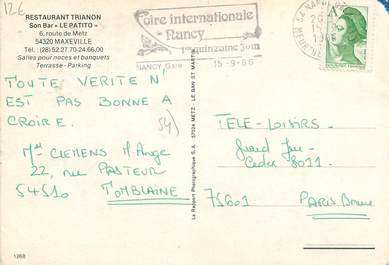 126
RESTAURANT TRIANON
Son Bar « LE PATITO »
6, route de Metz
54320 MAXEVILLE
Tél.: (28) 52.27.70-24.66.00
Salles pour noces et banquets
Terrasse - Parking
Foire internationale
Nancy
1re quinzaine Juin
NANCY Gare 15-9-86
TOUTE VERITE N'
EST PAS BONNE A
CROIRE.
54)
Mme CLEMENS M-Ange
22, rue PASTEUR
54510 TOMBLAINE
TELE-LOISIRS.
Grand Jeu
Cedex 8011.
75601 PARIS Brune
La Rapport Photographique S.A. 57024 METZ - LE BAN ST MARTIN
1268